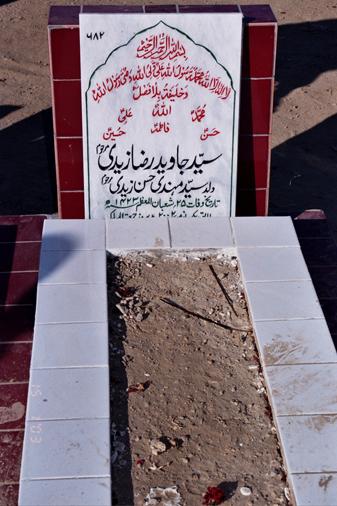 ۶۸۲
بسم اللہ الرحمن الرحیم
لا الہ الا اللہ محمد رسول اللہ علی ولی اللہ وصی رسول اللہ
وخلیفتہ بلا فصل
محمد اللہ علی
حسن فاطمہ حسین
سید جاوید رضا زیدی (مرحوم)
ولد سید مہندی حسن زیدی (مرحوم)
تاریخ وفات ۲۵، شعبان المعظم ۱۴۲۳ھ